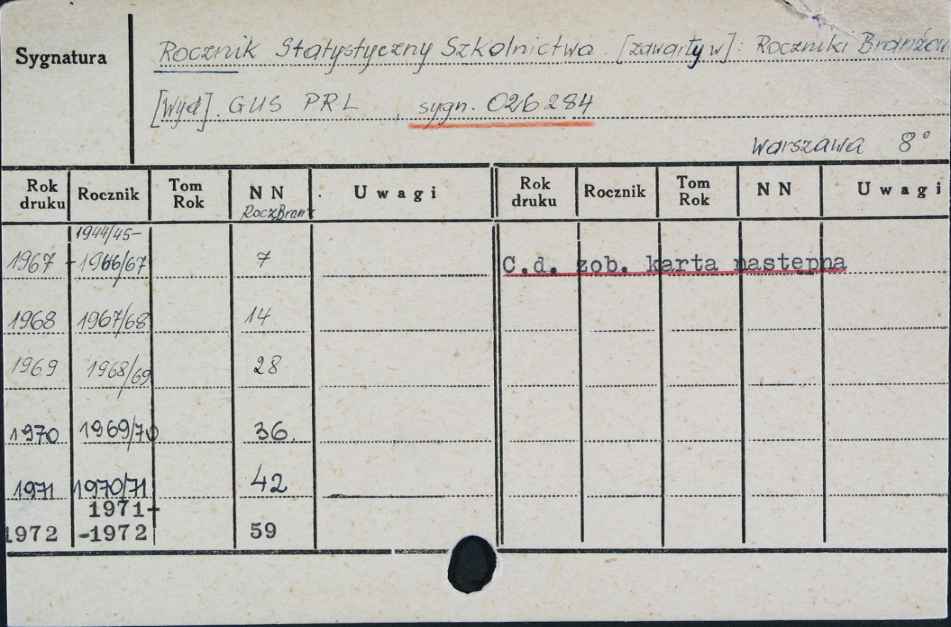 Sygnatura
Rocznik Statystyczny Szkolnictwa. [zawarty w]: Roczniki Branżow
[Wyd]. GUS PRL , sygn. 026284
Warszawa 8°
Rok druku Rocznik Tom Rok NN RoczBranż Uwagi Rok druku Rocznik Tom Rok NN Uwagi
1944/45-
1967 - 1966/67 7 C.d. zob. karta następna
1968 1967/68 14
1969 1968/69 28
1970 1969/70 36.
1971 1970/71 42
1971-
1972 -1972 59